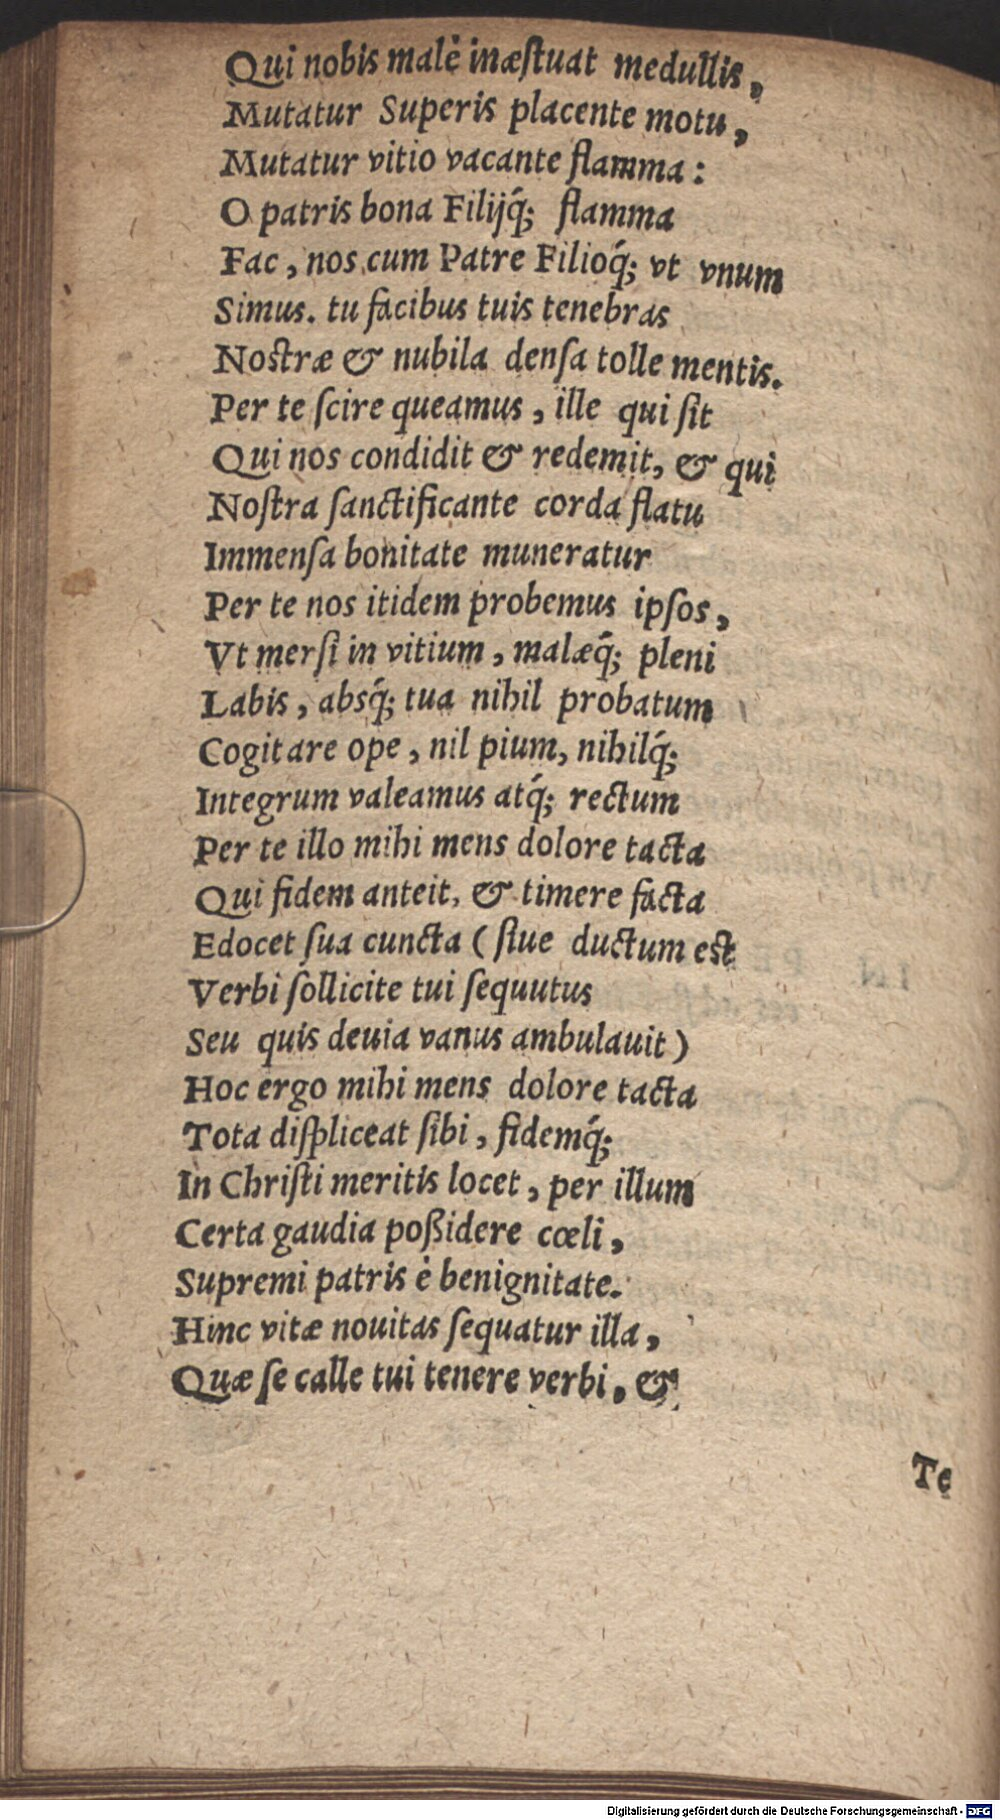 Qui nobis malè inæſtuat medullis,
Mutatur Superis placente motu,
Mutatur vitio vacante flamma:
O patris bona Filijq́; flamma
Fac, nos cum Patre Filioq́; vt vnum
Simus. tu facibus tuis tenebras
Noſtræ & nubila denſa tolle mentis.
Per te ſcire queamus, ille qui ſit
Qui nos condidit & redemit, & qui
Noſtra ſanctificante corda flatu
Immenſa bonitate muneratur
Per te nos itidem probemus ipſos,
Vt merſi in vitium, malæq́; pleni
Labis, absq́; tua nihil probatum
Cogitare ope, nil pium, nihilq́;
Integrum valeamus atq́; rectum
Per te illo mihi mens dolore tacta
Qui fidem anteit, & timere facta
Edocet ſua cuncta (ſiue ductum est
Verbi ſollicite tui ſequutus
Seu quis deuia vanus ambulauit)
Hoc ergo mihi mens dolore tacta
Tota diſpliceat ſibi, fidemq́;
In Chriſti meritis locet, per illum
Certa gaudia poßidere cœli,
Supremi patris è benignitate.
Hinc vitæ nouitas ſequatur illa,
Quæ ſe calle tui tenere verbi, &
Te
Digitalisierung gefördert durch die Deutsche Forschungsgemeinschaft - DFG